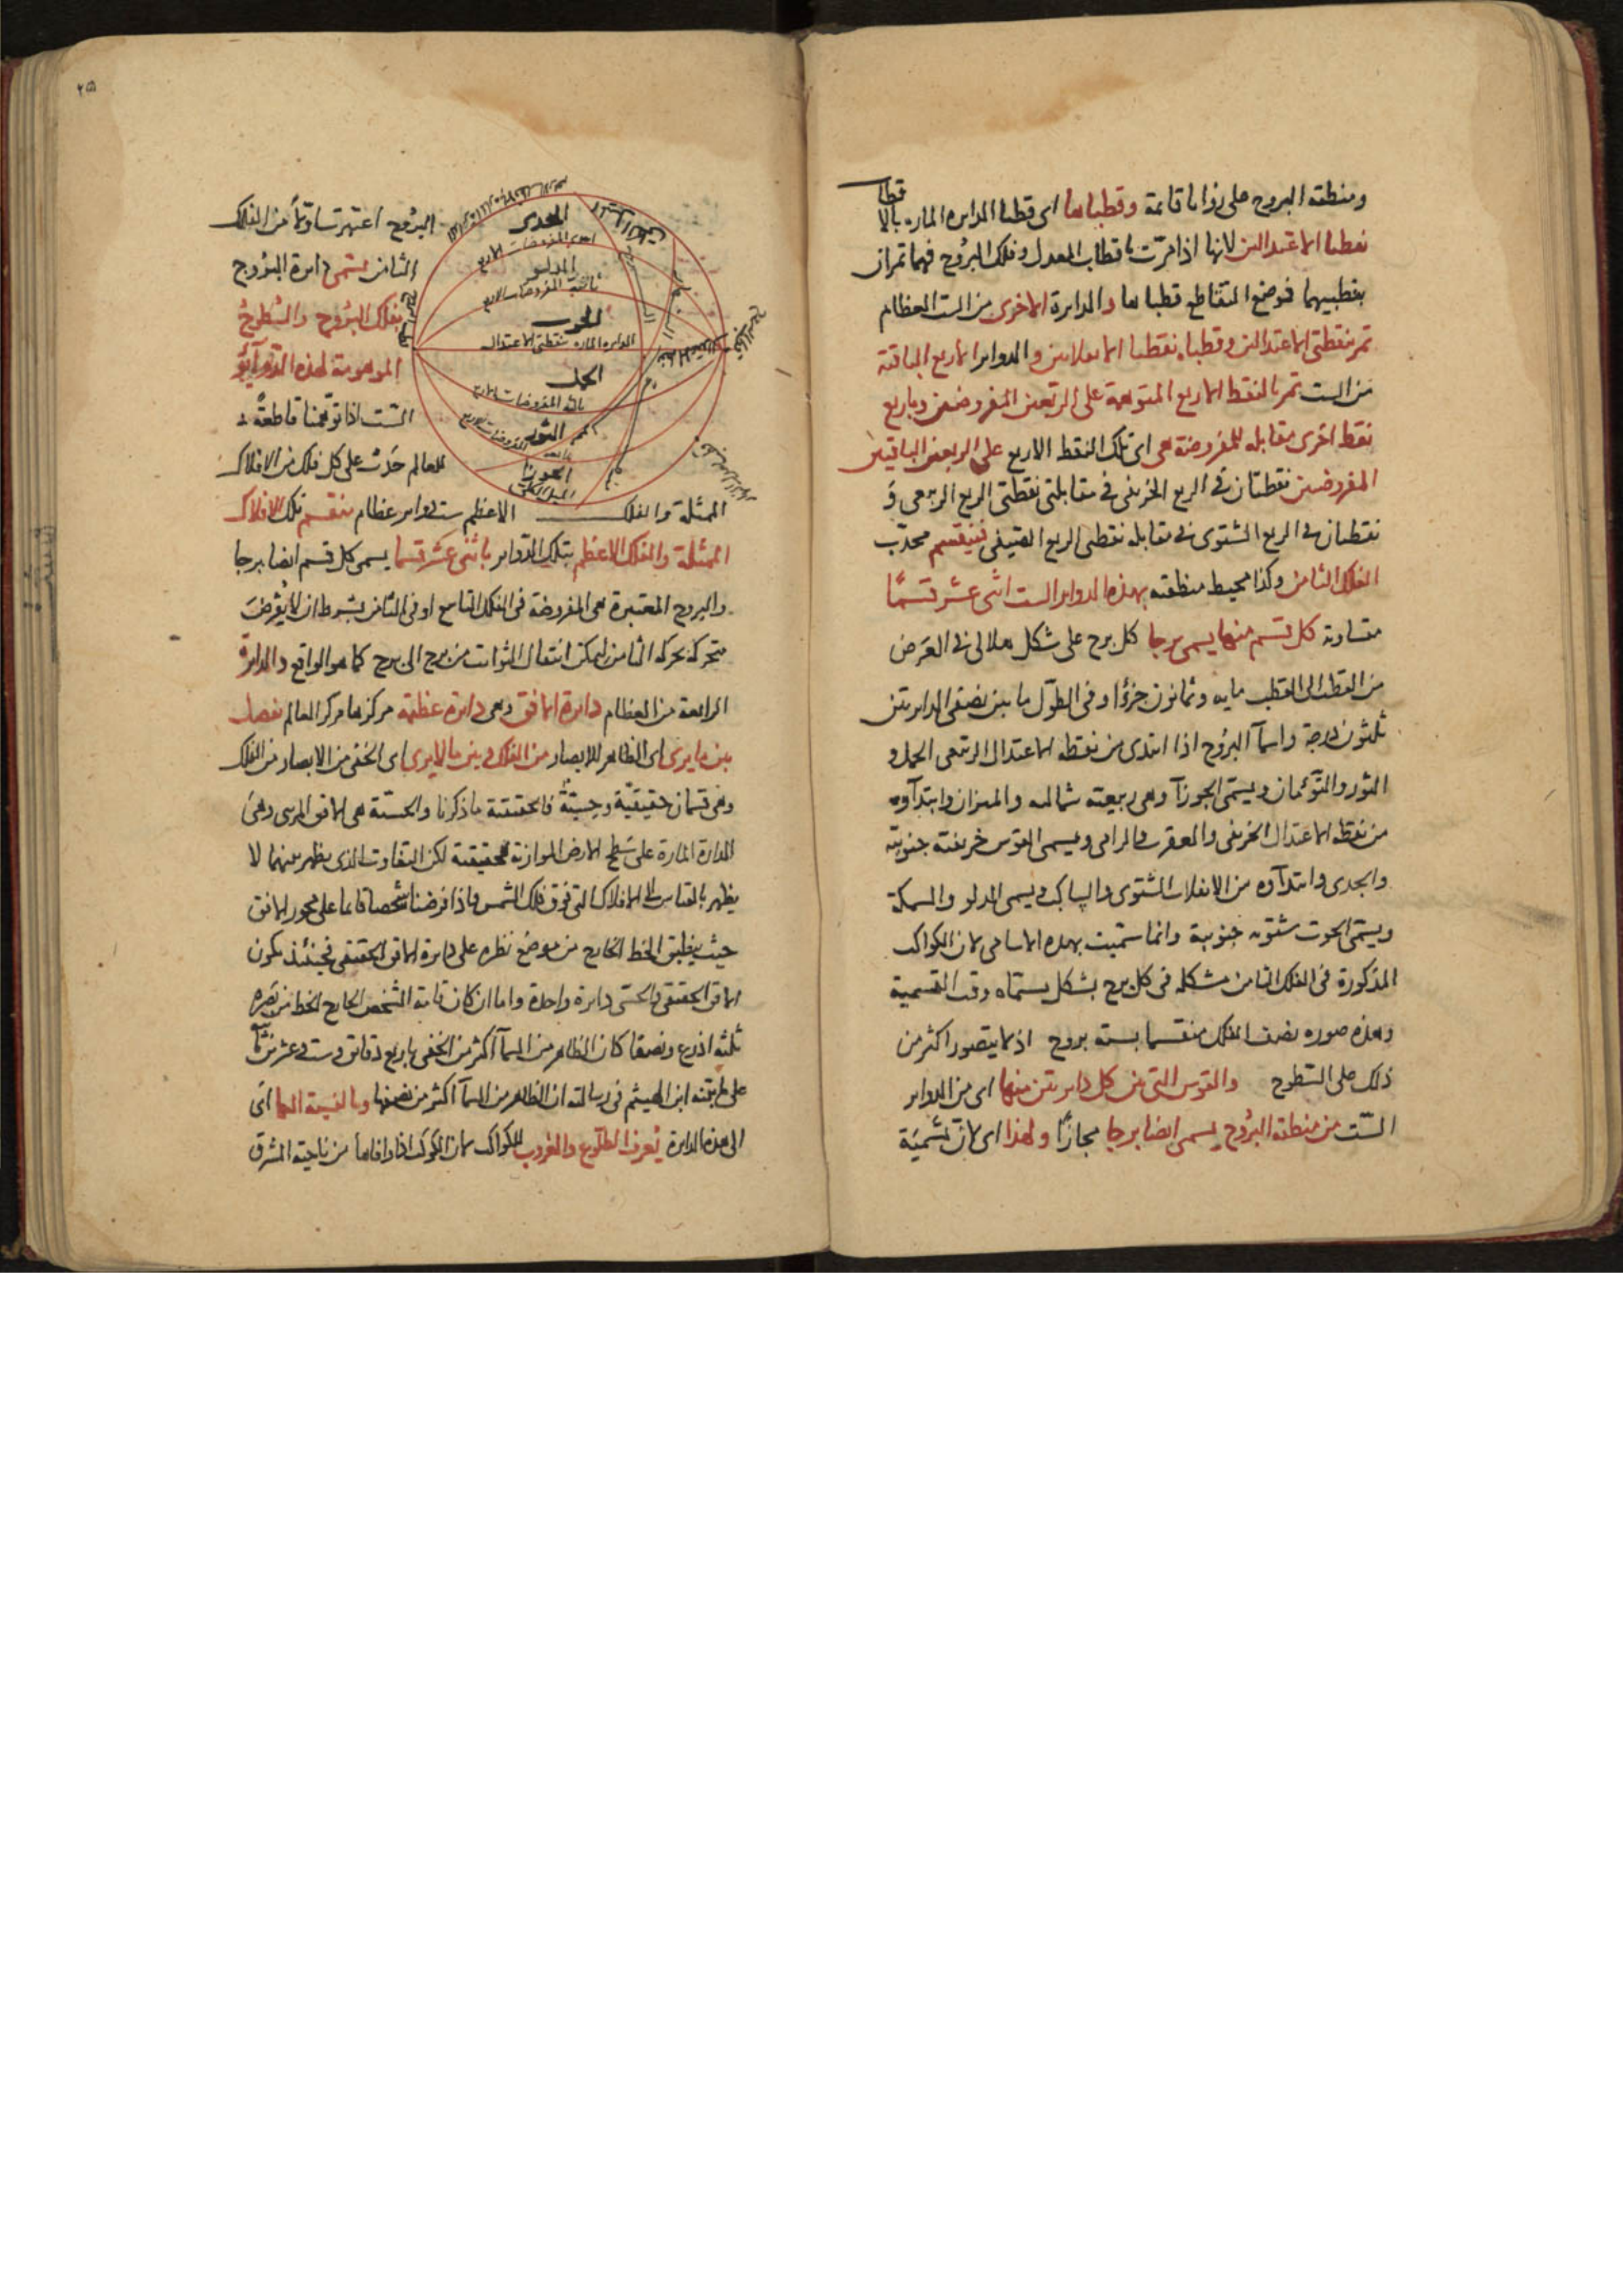 ومنطقة البروج على زوايا قائمة وقطباها اى قطبا الدايرة المارة بالاقطاب
نقطتا الاعتدالين لانها اذا مرّت باقطاب المعدل وفلك البروج فهما تمران
بقطبيهما فوضع التقاطع قطباها والدايرة الاخرى من الست العظام
تمر بنقطتى الاعتدالين وقطباه نقطتا الانقلابين والدواير الاربع الباقية
من الست تمر بالنقط الاربع المتوهمة على الربعين المفروضين وباربع
نقط اخرى مقابلة للمفروضة هى اى تلك النقط الاربع على الربعين الباقيين
المفروضين نقطتان فى الربع الخريفى فى مقابلتى نقطتى الربع الربيعى و
نقطتان فى الربع الشتوى فى مقابلة نقطتى الربع الصيفى فينقسم محدّب
الفلك الثامن وكذا محيط منطقته بهذه الدواير الست اثنى عشر قسمًا
متساوية كل قسم منها يسمى برجا كل برج على شكل هلالى فى العرض
من القطب الى القطب مايه وثمانون جزؤا وفى الطول ما بين نصفى الدايرتين
ثلثون درجة واسمآ البروج اذا ابتدى من نقطة الاعتدال الربيعى الحمل و
الثور والتوءمان ويسمى الجوزآ وهى ربيعية شمالية والميزان وابتدآوه
من نقطة الاعتدال الخريفى والعقرب والرامى ويسمى القوس خريفية جنوبية
والجدى وابتدآوه من الانقلاب الشتوى والساكب ويسمى الدلو والسمكة
ويسمى الحوت شتوية جنوبية وانما سمّيت بهذه الاسامى لان الكواكب
المذكورة فى الفلك الثامن مشكلة فى كل برج بشكل مسمّاه وقت القسمية
وهذه صورة نصف الفلك منقسما بستة بروج اذ لا يتصور اكثر من
ذلك على السّطوح والقوس التى بين كل دايرتين منها اى من الدواير
السّت من منطقة البرُوج يسمى ايضا برجا مجازًا ولهذا اى لانّ تسميَة
٢٥
البرُوج اعتبرت اوّلا من الفلك
الثامن يسمى دايرة البروج
بفلك البرُوج والسُّطوح
الموهومة لهذه الدّوآئر
السّت اذا توهمنا قاطعةً
للعالم حدَث على كل فلك من الافلاك
الممثلة والفلك الاعظم ست دواير عظام ينقسم تلك الافلاك
الممثلة والفلك الاعظم بتلك الدّواير باثنى عشر قسما يسمى كل قسم ايضا برجا
والبروج المعتبرة هى المفروضة فى الفلك التاسع او فى الثامن بشرط ان لا يُفرض
متحركة بحركة الثامن ليمكن انتقال الثوابت من برج الى برج كما هو الواقع والدايرة
الرابعة من العظام دايرة الافق وهى دايرة عظيمة مركزها مركز العالم تفصل
بين ما يرى اى الظاهر للابصار من الفلك وبين ما لا يرى اى الخفى من الابصار من الفلك
وهى قسمان حقيقيّة وحسيّةٌ فالحقيقية ما ذكرنا والحسيّة هى الافق المرئى وهىَ
الدايرة المارة على سطح الارض الموازية للحقيقية لكن التفاوت الذى يظهر بينهما لا
يظهر بالقياس الى الافلاك التى فوق فلك الشمس واذا فرضنا شخصا قائما على محور الافق
حيث ينطبق الخط الخارج من موضع نظره على دايرة الافق الحقيقى فحينئذ يكون
الافق الحقيقى والحسّى دايرة واحدة واما ان كان قامة الشخص الخارج الخط من بَصَره
ثلثة اذرع ونصفا كان الظاهر من السمآ اكثر من الخفى باربع دقائق وست وعشرين ثانية
على ما بيّنه ابن الهيثم فى رسالته ان الظاهر من السمآ اكثر من نصفها وبالنسبة اليها اى
الى هذه الدايرة يُعرف الطلوع والغروب للكواكب لان الكوكب اذا وافاها من ناحية المشرق
الجدى
احدى المفروضات الاربع
الدلو
ثانية المفروضات الاربع
الحوت
الدايرة المارة بنقطتى الاعتدال
الحمل
ثالثة المفروضات الاربع
الثور
رابعة المفروضات الاربع
الجوزا
الميل الكلى
قطب البروج
قطب البروج